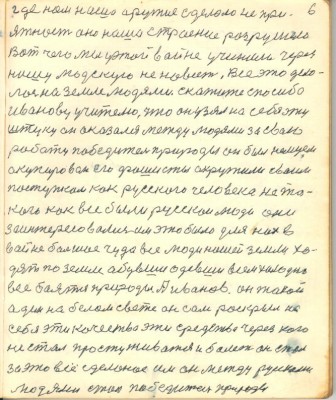 где нам наша оружие сделало не при- 6
ятность оно наша строение разрушило
Вот чего мы у этой вайне учинили через
нашу людскую не новисть, Все это дела-
лось на земле людями скажите спосибо
Иванову учителю, что он узял на себя эту
штуку он аказался между людями за свою
работу победител природы он был нашуем
акупирован Его фашисты окружили своим
поступком как русского человека на та-
кого как все были русском люди они
заинтересовались им это было для них в
вайне большое чуда все люди нашей земли хо-
дять по земле абувши одевши всем холодно
все баятся природы А Иванов. он такой
адин на белом свете он сам раскрыл на
себя эти качества эти средства через кого
не стал простуживатся и болеть он стал
за это всё сделоное им он между русскими
людями стал победител природы